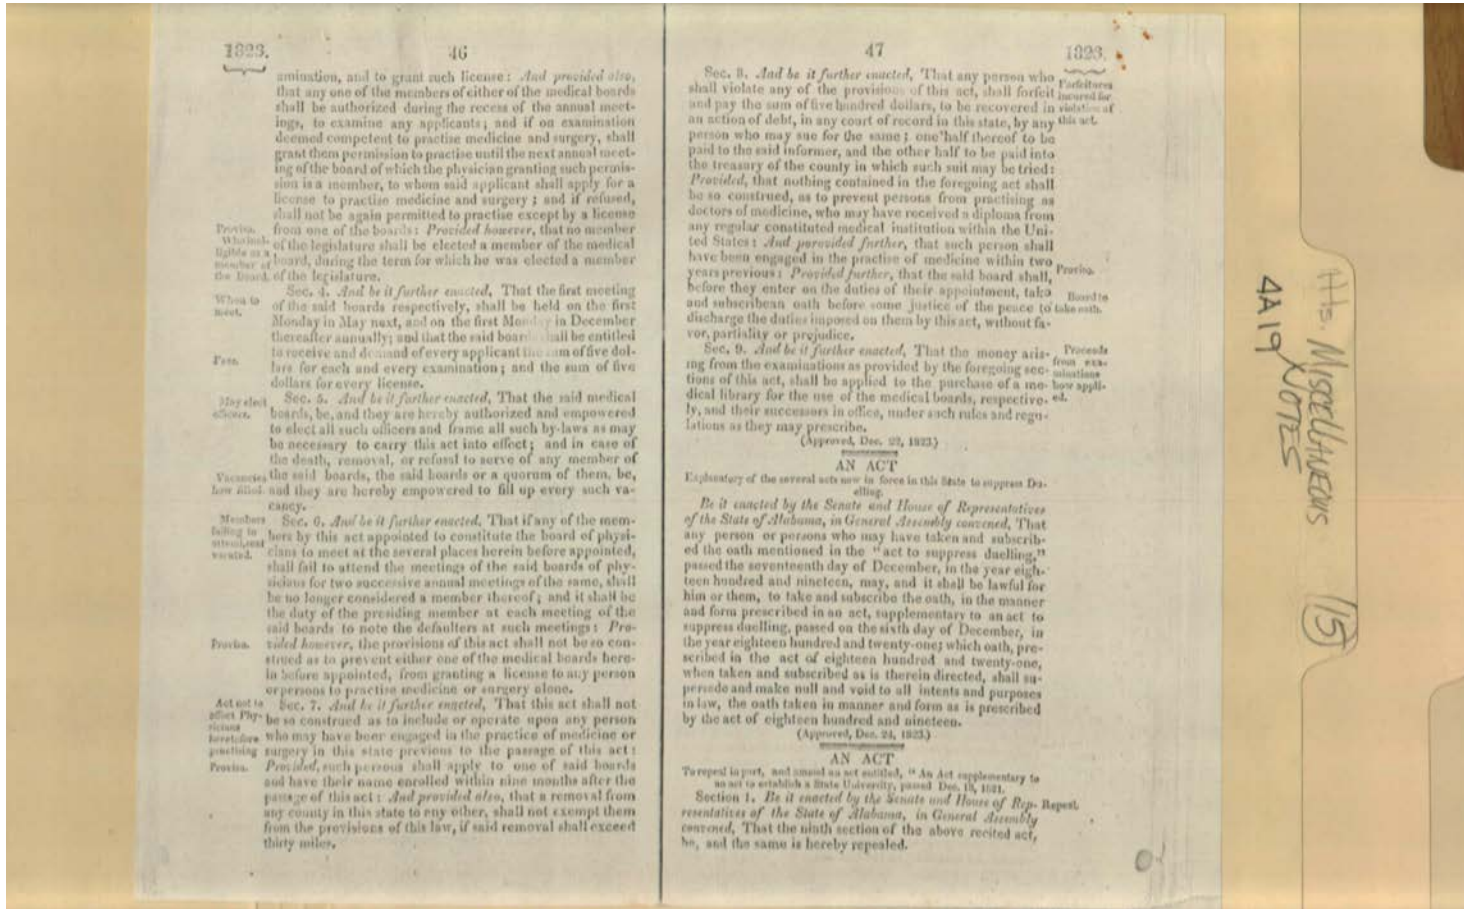 1823.
46
amination, and to grant such license: And provided also,
that any one of the members of either of the medical boards
shall be authorized during the recess of the annual meet-
ings, to examine any applicants; and if on examination
deemed competent to practise medicine and surgery, shall
grant them permission to practise until the next annual meet-
ing of the board of which the physician granting such permis-
sion is a member, to whom said applicant shall apply for a
license to practise medicine and surgery; and if refused,
shall not be again permitted to practise except by a license
Proviso. from one of the boards: Provided however, that no member
Who inel- of the legislature shall be elected a member of the medical
igible as a board, during the term for which he was elected a member
member of
the board. of the legislature.
Sec. 4. And be it further enacted, That the first meeting
When to of the said boards respectively, shall be held on the first
meet. Monday in May next, and on the first Monday in December
thereafter annually; and that the said board shall be entitled
to receive and demand of every applicant the sum of five dol-
Fees. lars for each and every examination; and the sum of five
dollars for every license.
May elect Sec. 5. And be it further enacted, That the said medical
officers. boards, be, and they are hereby authorized and empowered
to elect all such officers and frame all such by-laws as may
be necessary to carry this act into effect; and in case of
the death, removal, or refusal to serve of any member of
Vacancies the said boards, the said boards or a quorum of them, be,
how filled. and they are hereby empowered to fill up every such va-
cancy.
Members Sec. 6. And be it further enacted, That if any of the mem-
failing to bers by this act appointed to constitute the board of physi-
attend, seat
vacated. cians to meet at the several places herein before appointed,
shall fail to attend the meetings of the said boards of phy-
sicians for two successive annual meetings of the same, shall
be no longer considered a member thereof; and it shall be
the duty of the presiding member at each meeting of the
said boards to note the defaulters at such meetings: Pro-
Proviso. vided however, the provisions of this act shall not be so con-
strued as to prevent either one of the medical boards here-
in before appointed, from granting a license to any person
or persons to practise medicine or surgery alone.
Act not to Sec. 7. And be it further enacted, That this act shall not
affect Phy- be so construed as to include or operate upon any person
sicians
heretofore who may have been engaged in the practice of medicine or
practising surgery in this state previous to the passage of this act:
Proviso. Provided, such persons shall apply to one of said boards
and have their name enrolled within nine months after the
passage of this act: And provided also, that a removal from
any county in this state to any other, shall not exempt them
from the provisions of this law, if said removal shall exceed
thirty miles.
47
1823.
Sec. 8. And be it further enacted, That any person who
shall violate any of the provisions of this act, shall forfeit Forfeitures
and pay the sum of five hundred dollars, to be recovered in incured for
violation of
an action of debt, in any court of record in this state, by any this act.
person who may sue for the same; one half thereof to be
paid to the said informer, and the other half to be paid into
the treasury of the county in which such suit may be tried:
Provided, that nothing contained in the foregoing act shall
be so construed, as to prevent persons from practising as
doctors of medicine, who may have received a diploma from
any regular constituted medical institution within the Uni-
ted States: And porovided further, that such person shall
have been engaged in the practise of medicine within two
years previous: Provided further, that the said board shall, Proviso.
before they enter on the duties of their appointment, take
and subscribe an oath before some justice of the peace to Board to
take oath.
discharge the duties imposed on them by this act, without fa-
vor, partiality or prejudice.
Sec. 9. And be it further enacted, That the money aris- Proceeds
ing from the examinations as provided by the foregoing sec- from exa-
minations
tions of this act, shall be applied to the purchase of a me- how appli-
dical library for the use of the medical boards, respective- ed.
ly, and their successors in office, under such rules and regu-
lations as they may prescribe.
(Approved, Dec. 22, 1823.)
AN ACT
Explanatory of the several acts now in force in this State to suppress Du-
elling.
Be it enacted by the Senate and House of Representatives
of the State of Alabama, in General Assembly convened, That
any person or persons who may have taken and subscrib-
ed the oath mentioned in the "act to suppress duelling,"
passed the seventeenth day of December, in the year eigh-
teen hundred and nineteen, may, and it shall be lawful for
him or them, to take and subscribe the oath, in the manner
and form prescribed in an act, supplementary to an act to
suppress duelling, passed on the sixth day of December, in
the year eighteen hundred and twenty-one; which oath, pre-
scribed in the act of eighteen hundred and twenty-one,
when taken and subscribed as is therein directed, shall su-
persede and make null and void to all intents and purposes
in law, the oath taken in manner and form as is prescribed
by the act of eighteen hundred and nineteen.
(Approved, Dec. 24, 1823.)
AN ACT
To repeal in part, and amend an act entitled, "An Act supplementary to
an act to establish a State University, passed Dec. 18, 1821.
Section 1. Be it enacted by the Senate and House of Rep- Repeal.
resentatives of the State of Alabama, in General Assembly
convened, That the ninth section of the above recited act,
be, and the same is hereby repealed.
Hb. MISCELLANEOUS 115
4A19 NOTES